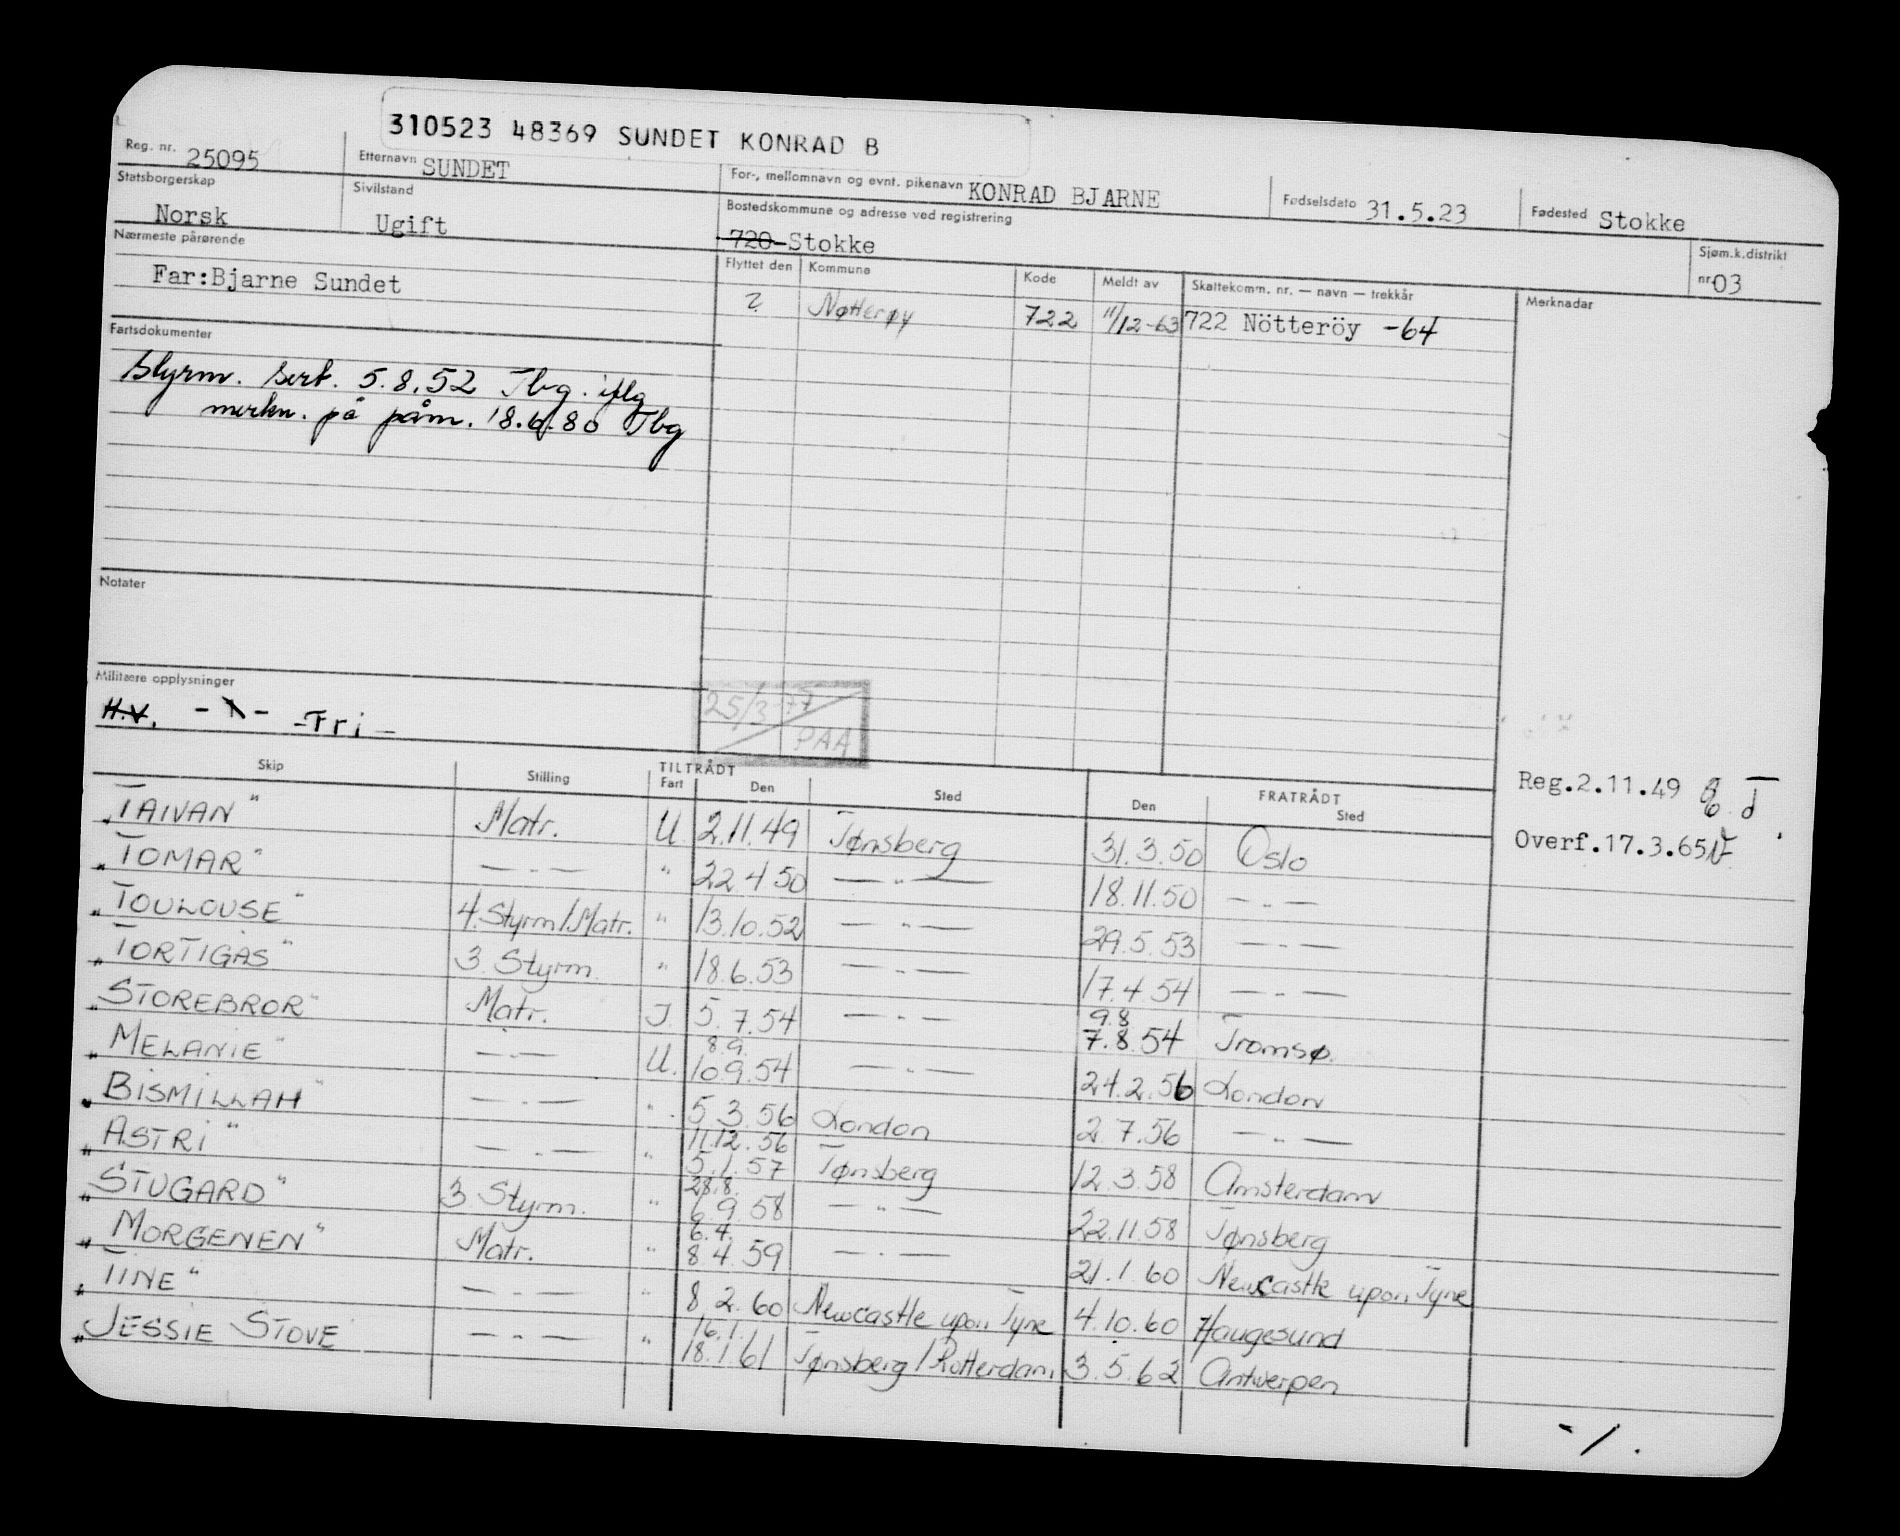 310523 48369 SUNDET KONRAD B
Reg. nr. 25095 Etternavn SUNDET For-, mellomnavn og evnt. pikenavn KONRAD BJARNE Fødselsdato 31.5.23 Fødested Stokke
Statsborgerskap Norsk Sivilstand Ugift Bostedskommune og adresse ved registrering 720 Stokke
Sjøm.k.distrikt nr 03
Nærmeste pårørende Flyttet den Kommune Kode Meldt av Skattekomm. nr. — navn — trekkår Merknadar
Far:Bjarne Sundet ? Nøtterøy 722 11/12-63 722 Nötteröy -64
Fartsdokumenter
Styrm. sert. 5.8.52 Tbg. iflg
merkn. på påm. 18.6.80 Tbg
Notater
Militære opplysninger
H.V. - 1 - -Fri-
25/3-77
PAA
Reg.2.11.49
Overf.17.3.65
TILTRÅDT FRATRÅDT
Skip Stilling Fart Den Sted Den Sted
"TAIVAN" Matr. U 2.11.49 Tønsberg 31.3.50 Oslo
"TOMAR" — " — " 22 4 50 — " — 18.11.50 — " —
"TOULOUSE" 4.Styrm/Matr. " 13.10.52 — " — 29.5.53 — " —
"TORTIGAS" 3. Styrm. " 18.6.53 — " — 17.4 54 — " —
"STOREBROR" Matr. I 5.7.54 — " — 9.8 7.8.54 Tromsø.
"MELANIE" — " — U. 8.9. 10.9.54 — " — 24.2.56 London
"BISMILLAH" — " — " 5 3.56 London 2 7.56 — " —
"ASTRI" — " — " 11.12.56 5.1.57 Tønsberg 12.3.58 Amsterdam
"STUGARD" 3 Styrm. " 28.8. 6.9 58 — " — 22.11.58 Tønsberg
"MORGENEN" Matr. " 6.4. 8 4.59 — " — 21.1.60 Newcastle upon Tyne
"TINE" — " — " 8.2.60 Newcastle upon Tyne 4.10.60 Haugesund
"JESSIE STOVE — " — " 16.1. 18.1.61 Tønsberg/Rotterdam 3.5.62 Antwerpen
- / .